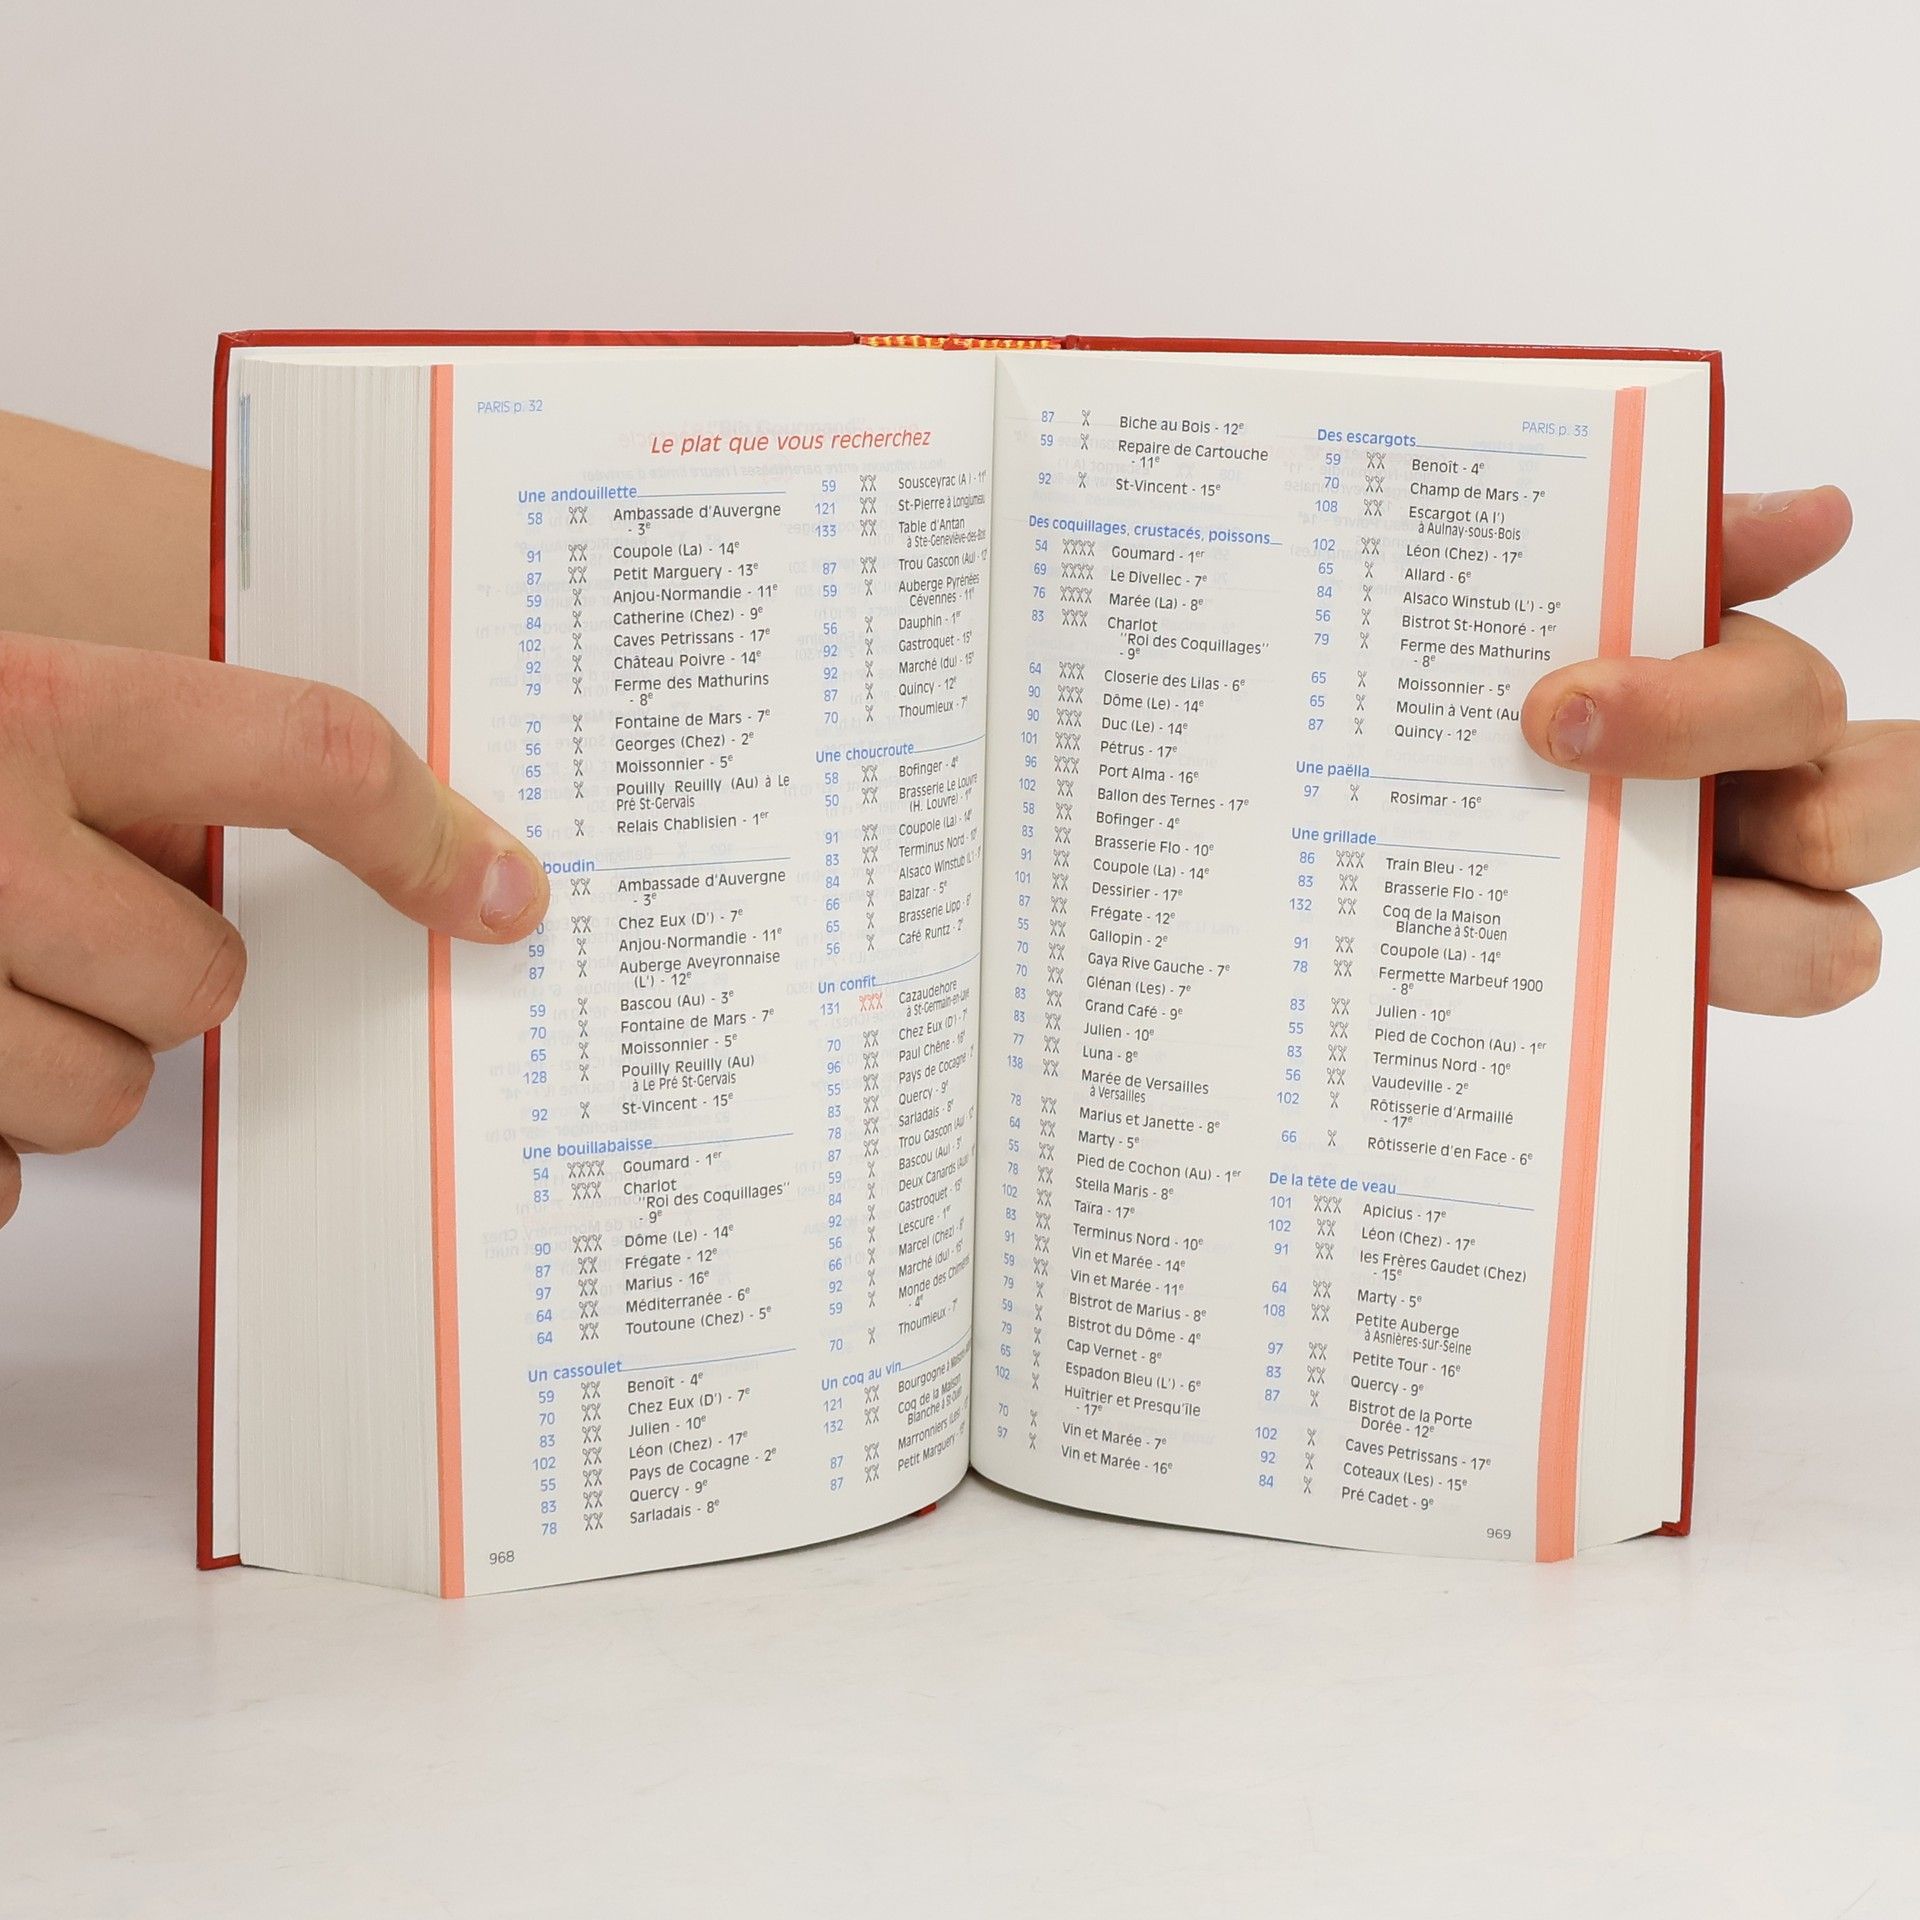 PARIS p. 32
Le plat que vous recherchez
Une andouillette
58 Ambassade d'Auvergne
- 3e
91 Coupole (La) - 14e
87 Petit Marguery - 13e
59 Anjou-Normandie - 11e
84 Catherine (Chez) - 9e
102 Caves Petrissans - 17e
92 Château Poivre - 14e
79 Ferme des Mathurins
- 8e
70 Fontaine de Mars - 7e
56 Georges (Chez) - 2e
65 Moissonnier - 5e
128 Pouilly Reuilly (Au) à Le
Pré St-Gervais
56 Relais Chablisien - 1er
boudin
Ambassade d'Auvergne
- 3e
0 Chez Eux (D') - 7e
59 Anjou-Normandie - 11e
87 Auberge Aveyronnaise
(L') - 12e
59 Bascou (Au) - 3e
70 Fontaine de Mars - 7e
65 Moissonnier - 5e
128 Pouilly Reuilly (Au)
à Le Pré St-Gervais
92 St-Vincent - 15e
Une bouillabaisse
54 Goumard - 1er
83 Charlot
"Roi des Coquillages"
- 9e
90 Dôme (Le) - 14e
87 Frégate - 12e
97 Marius - 16e
64 Méditerranée - 6e
64 Toutoune (Chez) - 5e
Un cassoulet
59 Benoît - 4e
70 Chez Eux (D') - 7e
83 Julien - 10e
102 Léon (Chez) - 17e
55 Pays de Cocagne - 2e
83 Quercy - 9e
78 Sarladais - 8e
968
59 Sousceyrac (A ) - 11e
121 St-Pierre à Longjumeau
133 Table d'Antan
à Ste-Geneviève-des-Bois
87 Trou Gascon (Au) - 12e
59 Auberge Pyrénées
Cévennes - 11e
56 Dauphin - 1er
92 Gastroquet - 15e
92 Marché (du) - 15e
87 Quincy - 12e
70 Thoumieux - 7e
Une choucroute
58 Bofinger - 4e
50 Brasserie Le Louvre
(H. Louvre) - 1er
91 Coupole (La) - 14e
83 Terminus Nord - 10e
84 Alsaco Winstub (L')
66 Balzar - 5e
65 Brasserie Lipp - 6e
56 Café Runtz - 2e
Un confit
131 Cazaudehore
à St-Germain-en-Laye
70 Chez Eux (D') - 7e
96 Paul Chêne - 16e
55 Pays de Cocagne
83 Quercy - 9e
78 Sarladais - 8e
87 Trou Gascon (Au)
59 Bascou (Au) - 3e
84 Deux Canards (Aux)
92 Gastroquet - 15e
56 Lescure - 1er
66 Marcel (Chez) - 6e
92 Marché (du) - 15e
59 Monde des Chimères
- 4e
70 Thoumieux - 7e
Un coq au vin
121 Bourgogne à
132 Coq de la Maison
Blanche à St-Ouen
87 Marronniers (Les)
87 Petit Marguery
87 Biche au Bois - 12e
59 Repaire de Cartouche
- 11e
92 St-Vincent - 15e
Des coquillages, crustacés, poissons
54 Goumard - 1er
69 Le Divellec - 7e
76 Marée (La) - 8e
83 Charlot
"Roi des Coquillages"
- 9e
64 Closerie des Lilas - 6e
90 Dôme (Le) - 14e
90 Duc (Le) - 14e
101 Pétrus - 17e
96 Port Alma - 16e
102 Ballon des Ternes - 17e
58 Bofinger - 4e
83 Brasserie Flo - 10e
91 Coupole (La) - 14e
101 Dessirier - 17e
87 Frégate - 12e
55 Gallopin - 2e
70 Gaya Rive Gauche - 7e
70 Glénan (Les) - 7e
83 Grand Café - 9e
83 Julien - 10e
77 Luna - 8e
138 Marée de Versailles
à Versailles
78 Marius et Janette - 8e
64 Marty - 5e
55 Pied de Cochon (Au) - 1er
78 Stella Maris - 8e
102 Taïra - 17e
83 Terminus Nord - 10e
91 Vin et Marée - 14e
59 Vin et Marée - 11e
79 Bistrot de Marius - 8e
59 Bistrot du Dôme - 4e
79 Cap Vernet - 8e
65 Espadon Bleu (L') - 6e
102 Huîtrier et Presqu'île
- 17e
70 Vin et Marée - 7e
97 Vin et Marée - 16e
PARIS p. 33
Des escargots
59 Benoît - 4e
70 Champ de Mars - 7e
108 Escargot (A l')
à Aulnay-sous-Bois
102 Léon (Chez) - 17e
65 Allard - 6e
84 Alsaco Winstub (L') - 9e
56 Bistrot St-Honoré - 1er
79 Ferme des Mathurins
- 8e
65 Moissonnier - 5e
65 Moulin à Vent (Au
87 Quincy - 12e
Une paëlla
97 Rosimar - 16e
Une grillade
86 Train Bleu - 12e
83 Brasserie Flo - 10e
132 Coq de la Maison
Blanche à St-Ouen
91 Coupole (La) - 14e
78 Fermette Marbeuf 1900
- 8e
83 Julien - 10e
55 Pied de Cochon (Au) - 1er
83 Terminus Nord - 10e
56 Vaudeville - 2e
102 Rôtisserie d'Armaillé
- 17e
66 Rôtisserie d'en Face - 6e
De la tête de veau
101 Apicius - 17e
102 Léon (Chez) - 17e
91 les Frères Gaudet (Chez)
- 15e
64 Marty - 5e
108 Petite Auberge
à Asnières-sur-Seine
97 Petite Tour - 16e
83 Quercy - 9e
87 Bistrot de la Porte
Dorée - 12e
102 Caves Petrissans - 17e
92 Coteaux (Les) - 15e
84 Pré Cadet - 9e
969